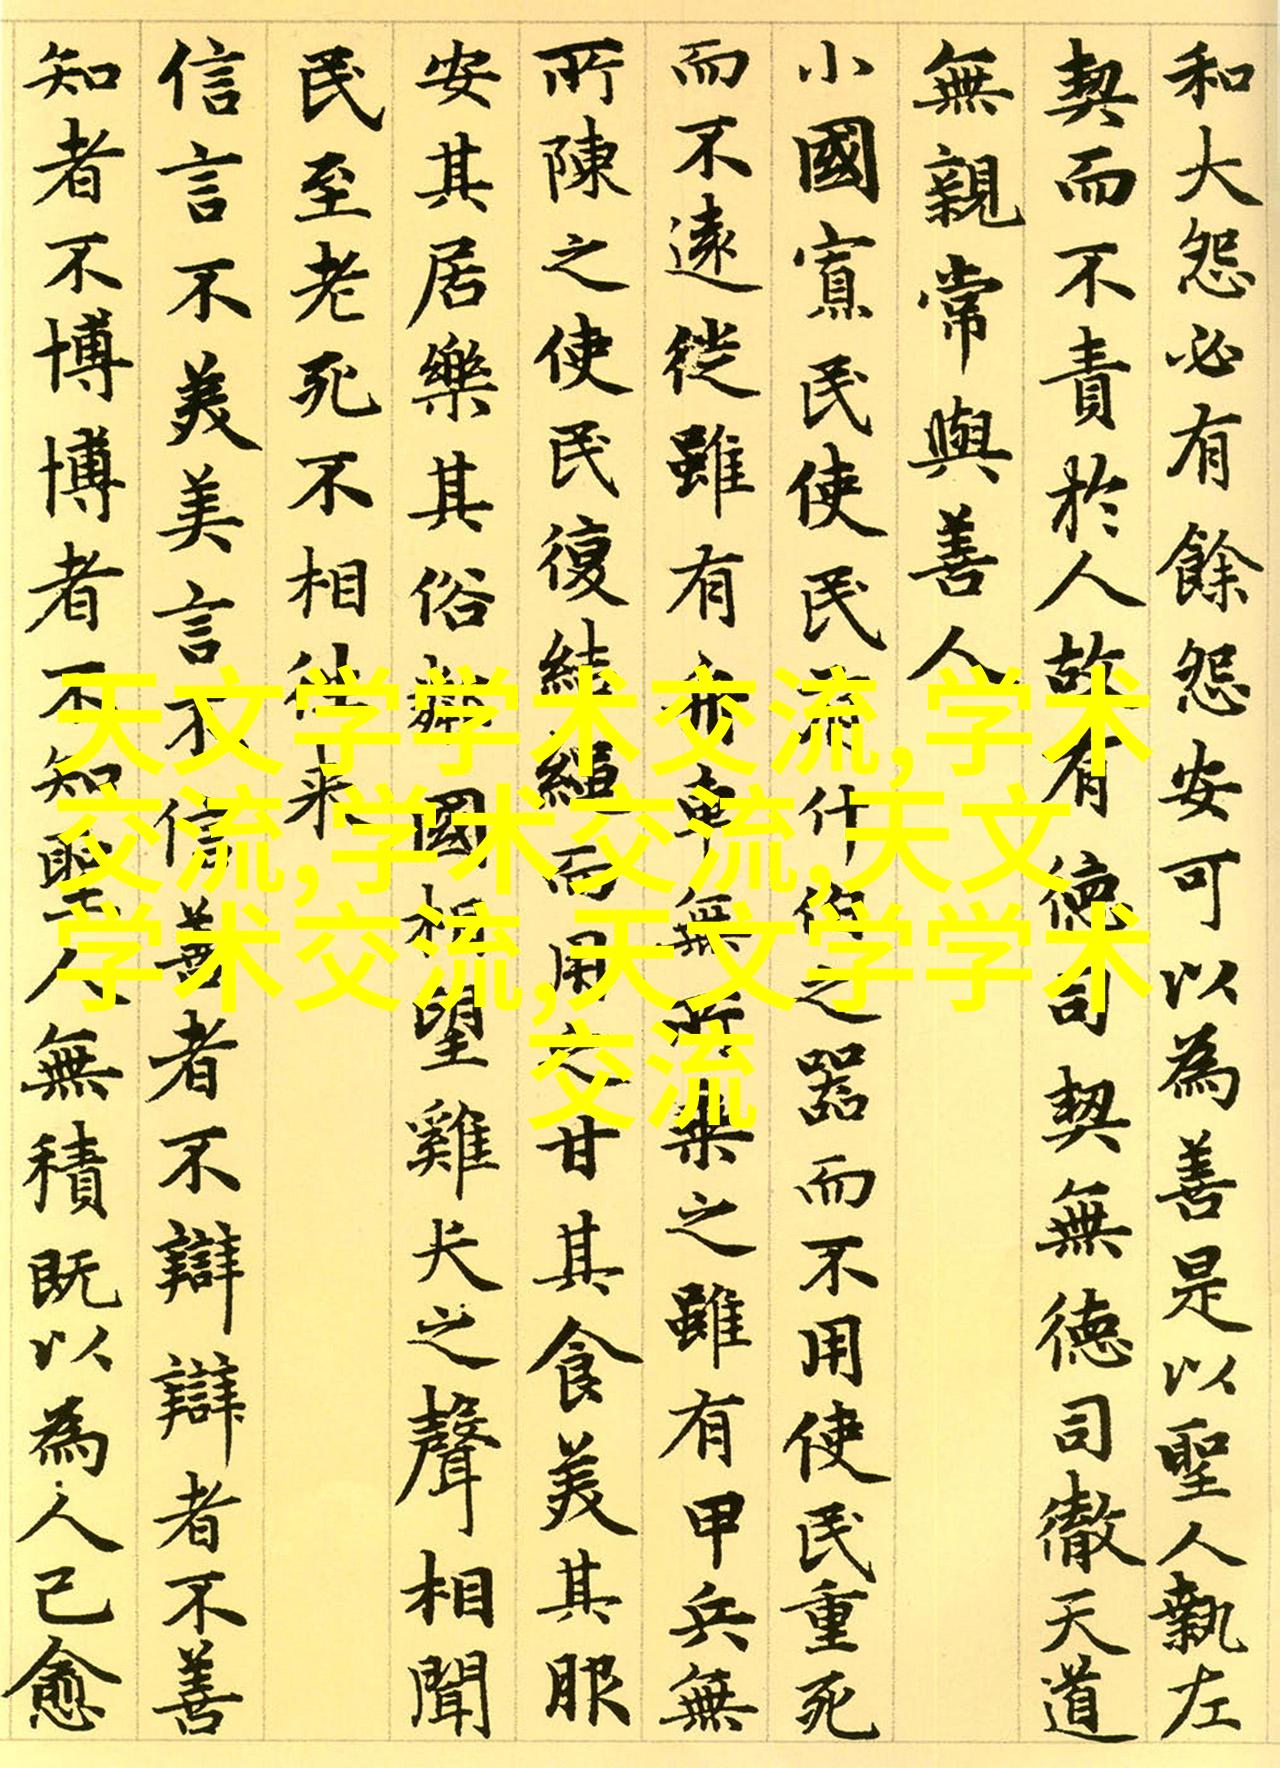 和大怨必有餘怨安可以為善是以聖人執左
契而不責於人故有德司契無德司徹天道
無親常與善人
小國寡民使民有什伯之器而不用使民重死
而不遠徙雖有舟車無所乗之雖有甲兵無
所陳之使民復結繩而用之甘其食美其服
安其居樂其俗鄰國相望雞犬之聲相聞
民至老死不相往来
信言不美美言不信善者不辯辯者不善
知者不博博者不知聖人無積既以為人己愈
天文学学术交流,学术
交流,学术交流,天文
学术交流,天文学学术
交流